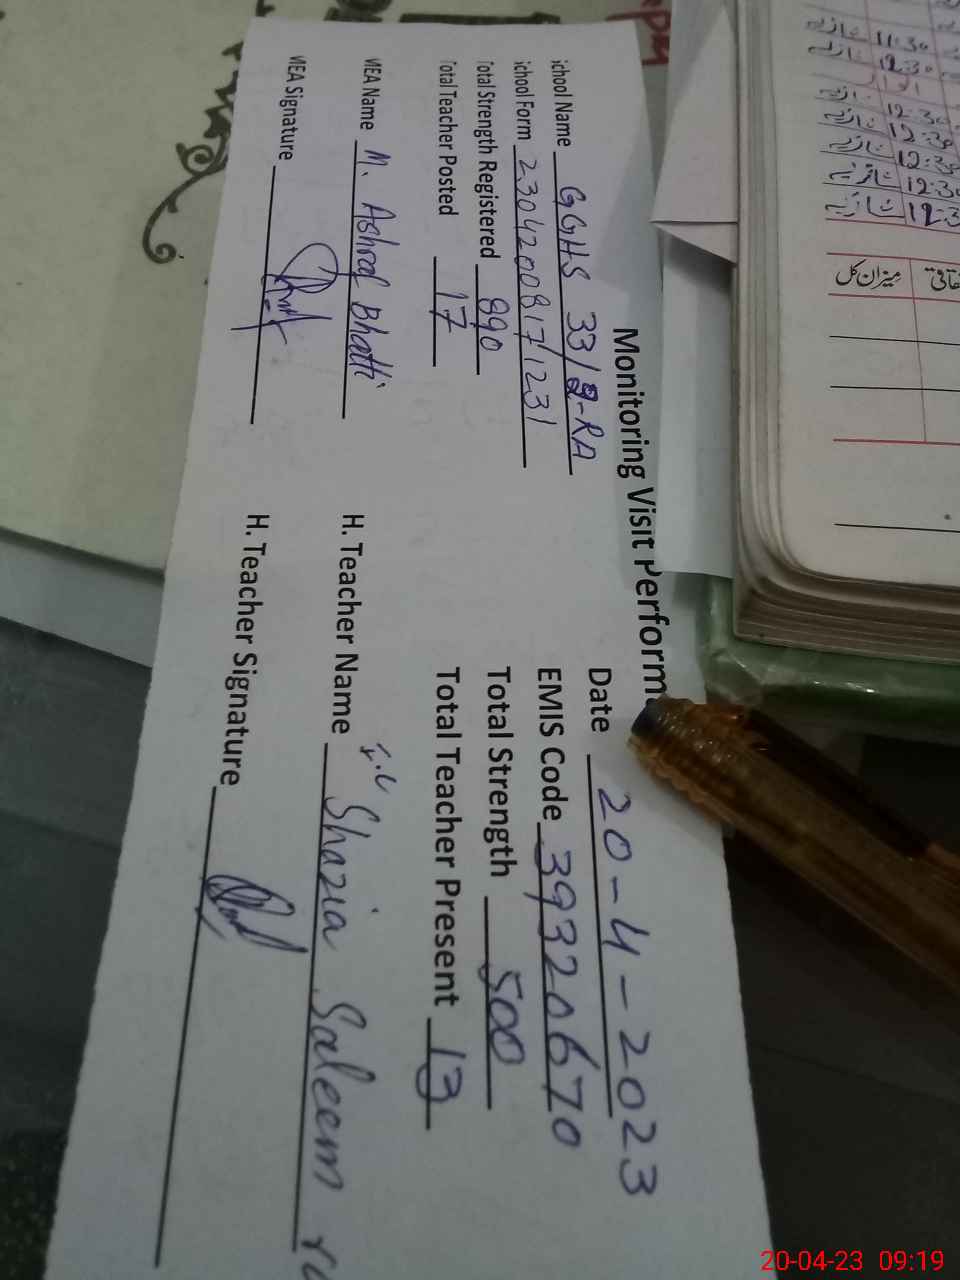 Monitoring Visit Perform
School Name GGHS 33/2-RA Date 20-4-2023
School Form 23042008171231 EMIS Code 39320670
Total Strength Registered 890 Total Strength 500
Total Teacher Posted 17 Total Teacher Present 13
MEA Name M. Ashraf Bhatti H. Teacher Name Shazia Saleem
MEA Signature H. Teacher Signature
11:30
12:30
12:30
12:30
12:30
12:30
میزان کل
20-04-23 09:19